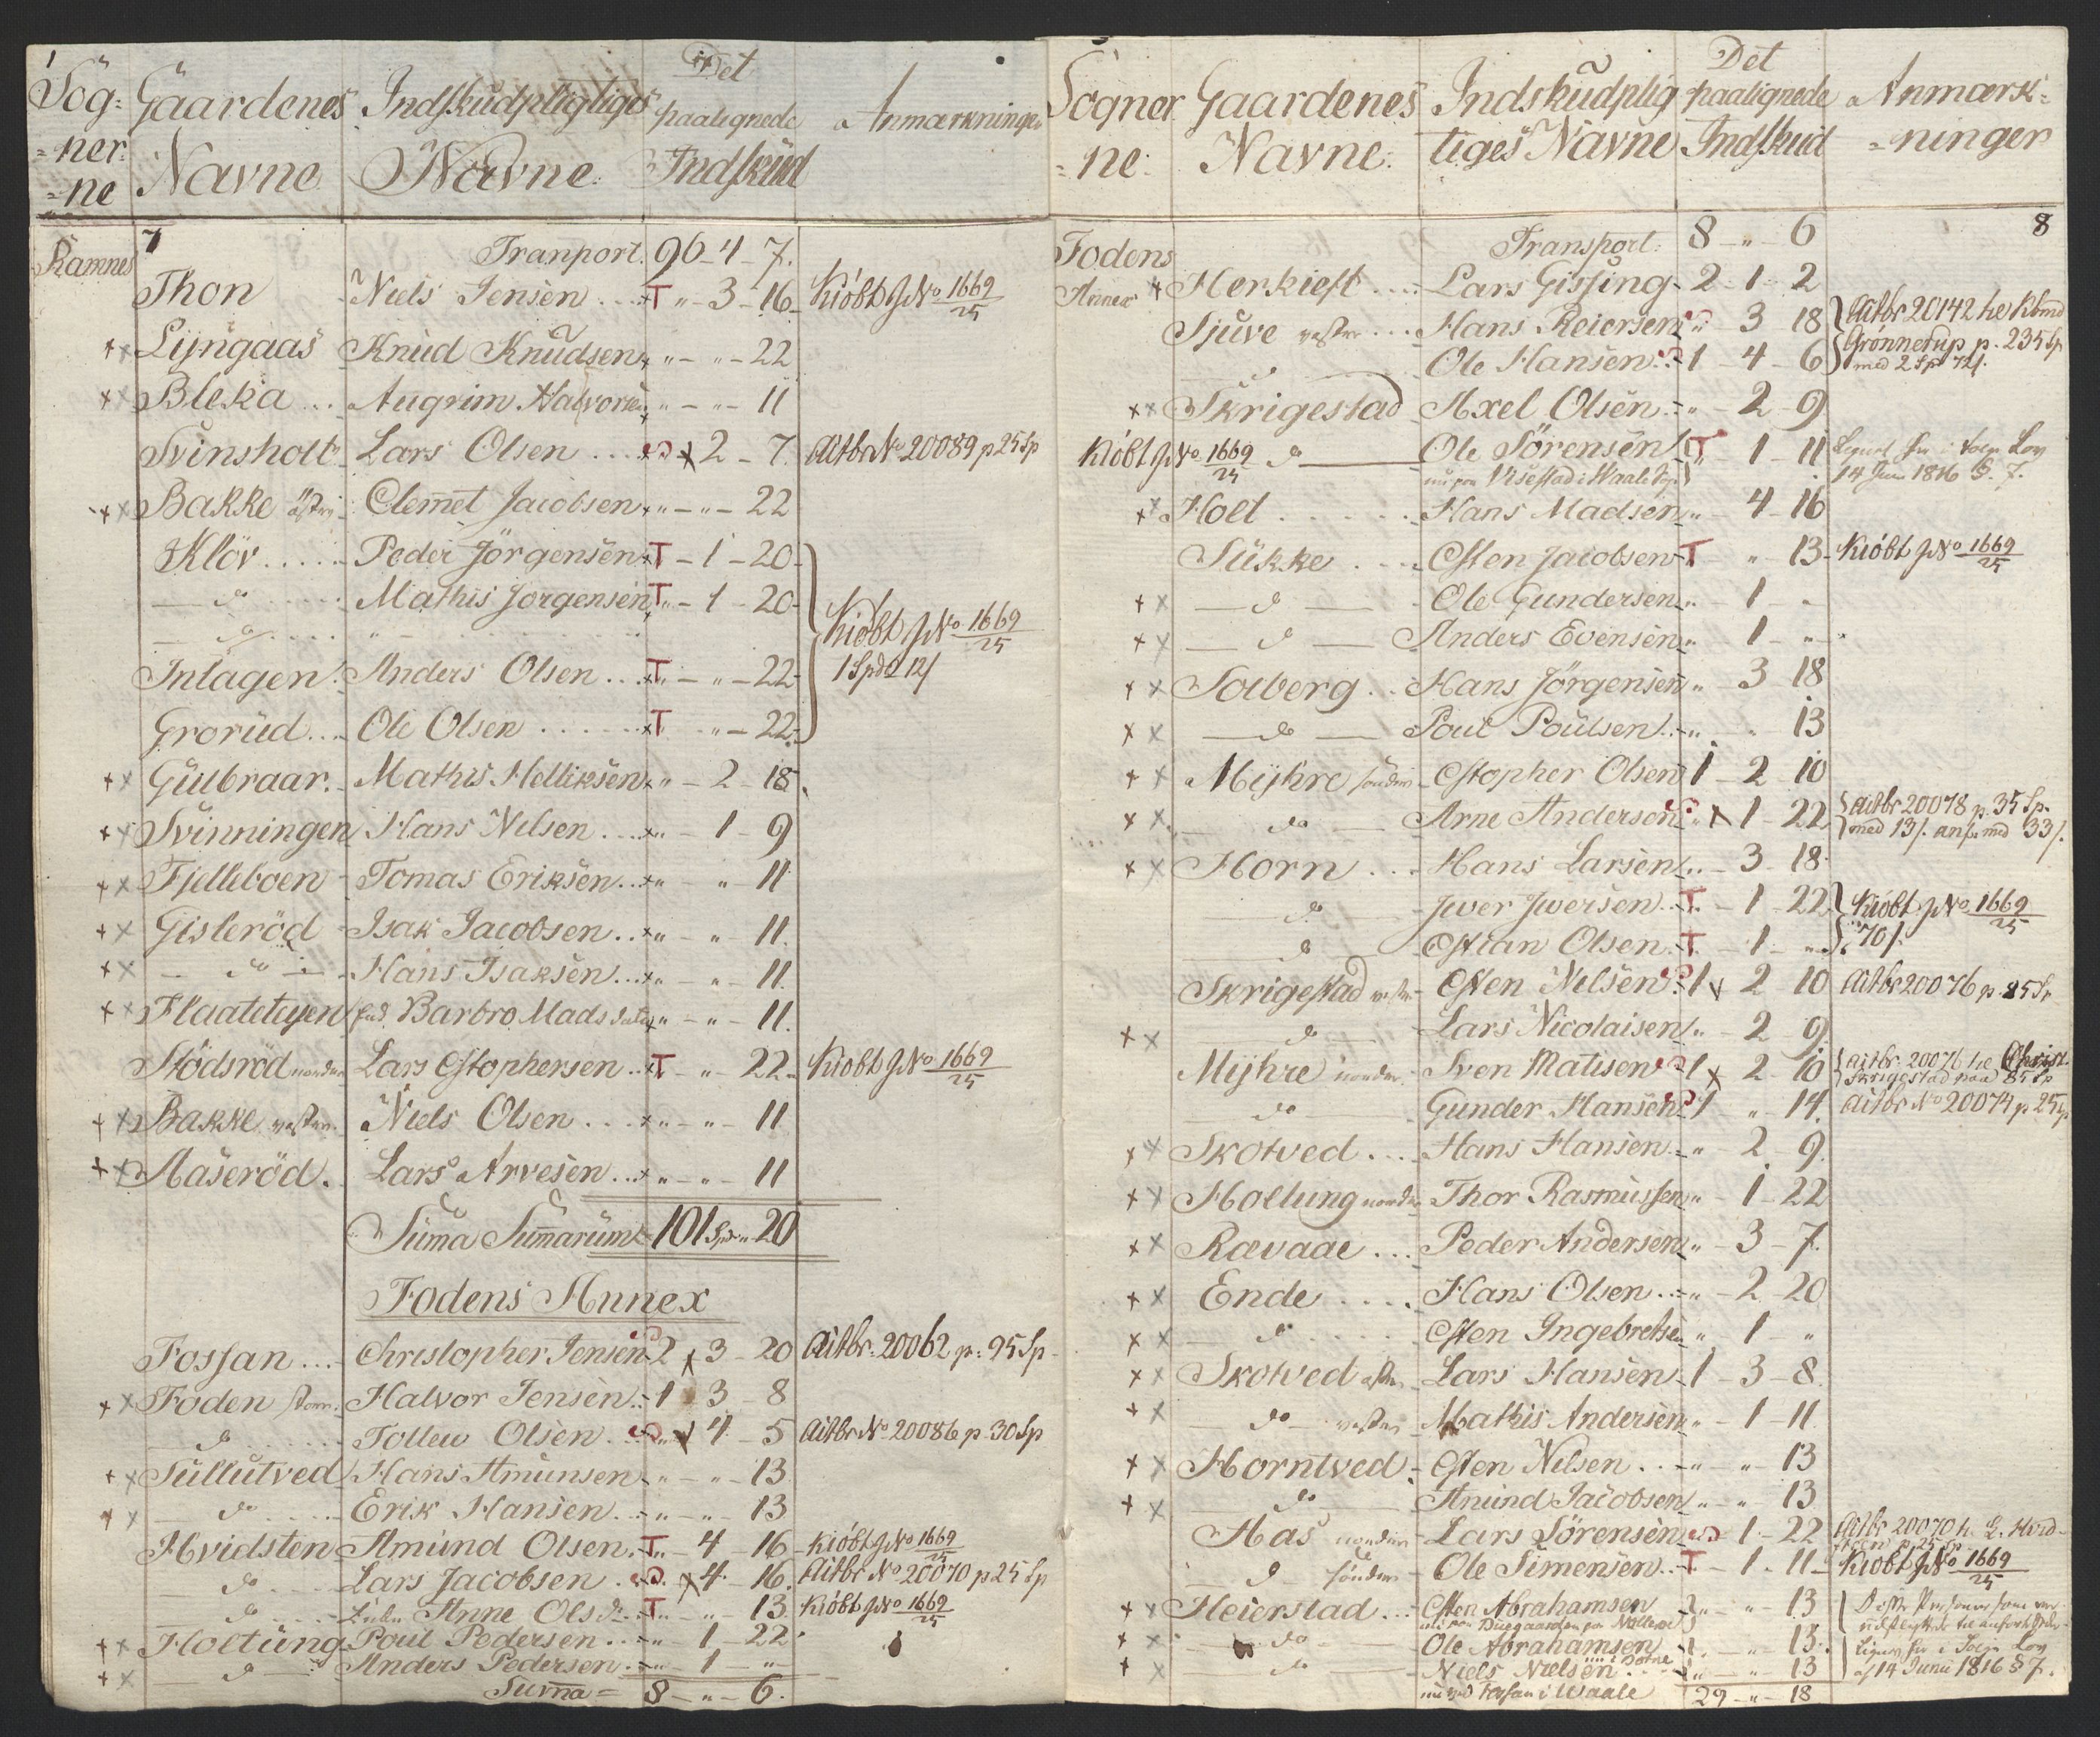 Sög= Gaardenes Indskudpligtiges Det
=ner= paalignede Anmærkninger
=ne Navne Navne Indskud
7
Ramnes Tranport. 96 - 4 - 7.
Thon Niels Jensen .... T " - 3 - 16 Kiöbt J No 1669/25
×× Lyngaas Knud Knudsen " - " - 22
×× Bleka ... Augrim Halvorsen " - " - 11
Svinsholt Lars Olsen .... × 2 - 7. Aitbr No 20089 p 25 Sp
×× Bakke östre Clemet Jacobsen " - " - 22
Klöv ..... Peder Jörgensen T - 1 - 20
do Mathis Jorgensen T " - 1 - 20
do " Kiöbt J No 1669/25
Inlagen Anders Olsen ... T " - " - 22 1 Spd 2 12/
Grorud ... Ole Olsen ...... T " - 22
×× Gulbraar. Mathis Helliksen " - 2 - 18
×× Svinningen Hans Nilsen .... " - 1 - 9
×× Fjelleboen Tomas Eriksen .. " - " - 11
×× Gisleröd Isak Jacobsen .. " - " - 11
×× do Hans Isaksen ... " - " - 11.
×× Flaateteyen Barbro Mads " - " - 11.
Stödsröd norden Lars Cstophersen .. T - " - 22 Kiobt J No 1669/25
×× Bakke vestre. Niels Olsen .... " - " - 11
×× Aaseröd. Lars Arvesen ... " - " - 11
Suma Sumarum 101 Spd " 20
Fodens Annex
Fossan ... Christopher Jensen 2 × 3 - 20 Aitbr. 20062 p. 95 Sp
×× Foden Halvor Jensen .. 1 3 - 8
do Tollew Olsen ... " × 4 - 5 Aitbr No 20086 p. 30 Sp
×× Tullutved Hans Amunsen " - " - 13
×× do Erik Hansen .... " - " - 13
Hvidsten Amund Olsen. T " - 4 - 16 Kiöbt J No 1669/25
do Lars Jacobsen . × 4 - 16. Aitbr No 20070 p 25 Sp
do Enken Anne Ols Dr. T " - " - 13. Kiöbt J No 1669/25
×× Holtung Poul Pedersen .... " - 1 - 22
×× do Anders Pedersen ... " - 1 - "
Suma = 8 - " - 6.
Sogner Gaardenes Indskudplig Det Anmærk=
=ne: Navne: tiges Navne paalignede =ninger
Indskud
8
Fodens Transport: 8 - " - 6
Annex × Herkieft .... Lars Gissing 2 - 1 - 2
Sjuve vestre ... Hans Reiersen " 3 18 Aitbr 20142 he Kbmd
Ole Hansen .. 1 - 4 - 6 Grønnerup p. 235 Sp
med 2 Sp 72/.
×× Skrigestad Axel Olsen .. " - 2 - 9
Kiobt J No 1669/25 do Ole Sörensen T 1 - 11
nu paa Visestad i Waale 14 Jun 1816 §. 7.
×× Hoel ...... Hans Madsen " 4 - 16
Sukke .... Csten Jacobsen T " - 13 Kiöbt J No 1669/25
×× do Ole Gundersen " - 1 - "
×× do Anders Evensen " 1 - "
×× Solberg .. Hans Jörgensen " 3 18
×× do Poul Poulsen .. " " 13
×× Myhre sönder Cstopher Olsen 1 - 2 10
×× do Arne Anderson " × 1 - 22 Aitbr 20078 p. 35 Sp.
med 13/. ans. med 33/.
×× Horn ... Hans Larsen .. " - 3 - 18
do Jwer Jwersen .. T " - 1 - 22 Kiöbt J No 1669/25
do Cstian Olsen .. T - 1 - " 70/.
Skrigestad vestre Csten Nilsen . 1 × 2 10 Aitbr 20076 p. 85 Sp
×× do Lars Nicolaisen " - 2 9
Myhre norder. Sven Matisen 1 × 2 10 Aitbr. 20076 he Christ.
Skrigestad paa 85 Sp
do Gunder Hansen 1 " 14. Aitbr No 20074 p 25 Sp
×× Skotved .... Hans Hansen .. " - 2 - 9
×× Holtung norder Thor Rasmussen " - 1 - 22
×× Rævaae ... Peder Andersen " - 3 - 7.
×× Ende .... Hans Olsen ... " - 2 20
×× do Csten Ingebretsen " 1 - "
×× Skotved Lars Hansen 1 - 3 - 8.
×× do vestre Mathis Andersen " - 1 - 11.
×× Horntved Csten Nilsen ... " - " 13
×× do Amund Jacobsen " - " - 13
Has norder Lars Sörensen 1 - 22 Aitbr 20070 h. L. Hvid-
steen p 25 Sp
do sönder Ole Simensen T - 1 - 11 Kiöbt J No 1669/25
×× Heierstad ... Csten Abrahamsen " - " - 13
×× do Ole Abrahamsen " - " - 13.
×× do Niels Nielsen " - " 13 af 14 Junii 1816 § 7.
nu ved Fossan i Waale 29 - " - 18